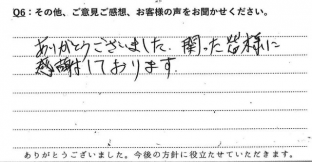 Q6：その他、ご意見ご感想、お客様の声をお聞かせください。
ありがとうございました。関った皆様に
感謝しております。
ありがとうございました。今後の方針に役立たせていただきます。